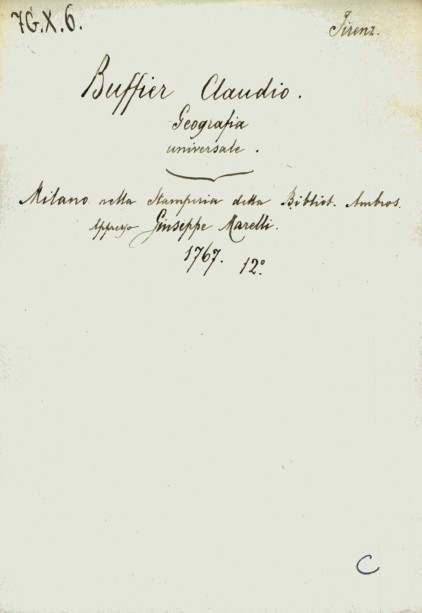 7G.X.6.
Firenz.
Buffier Claudio.
Geografia
universale.
Milano nella Stamperia della Bibliot. Ambros.
Appresso Giuseppe Marelli.
1767. 12°.
C